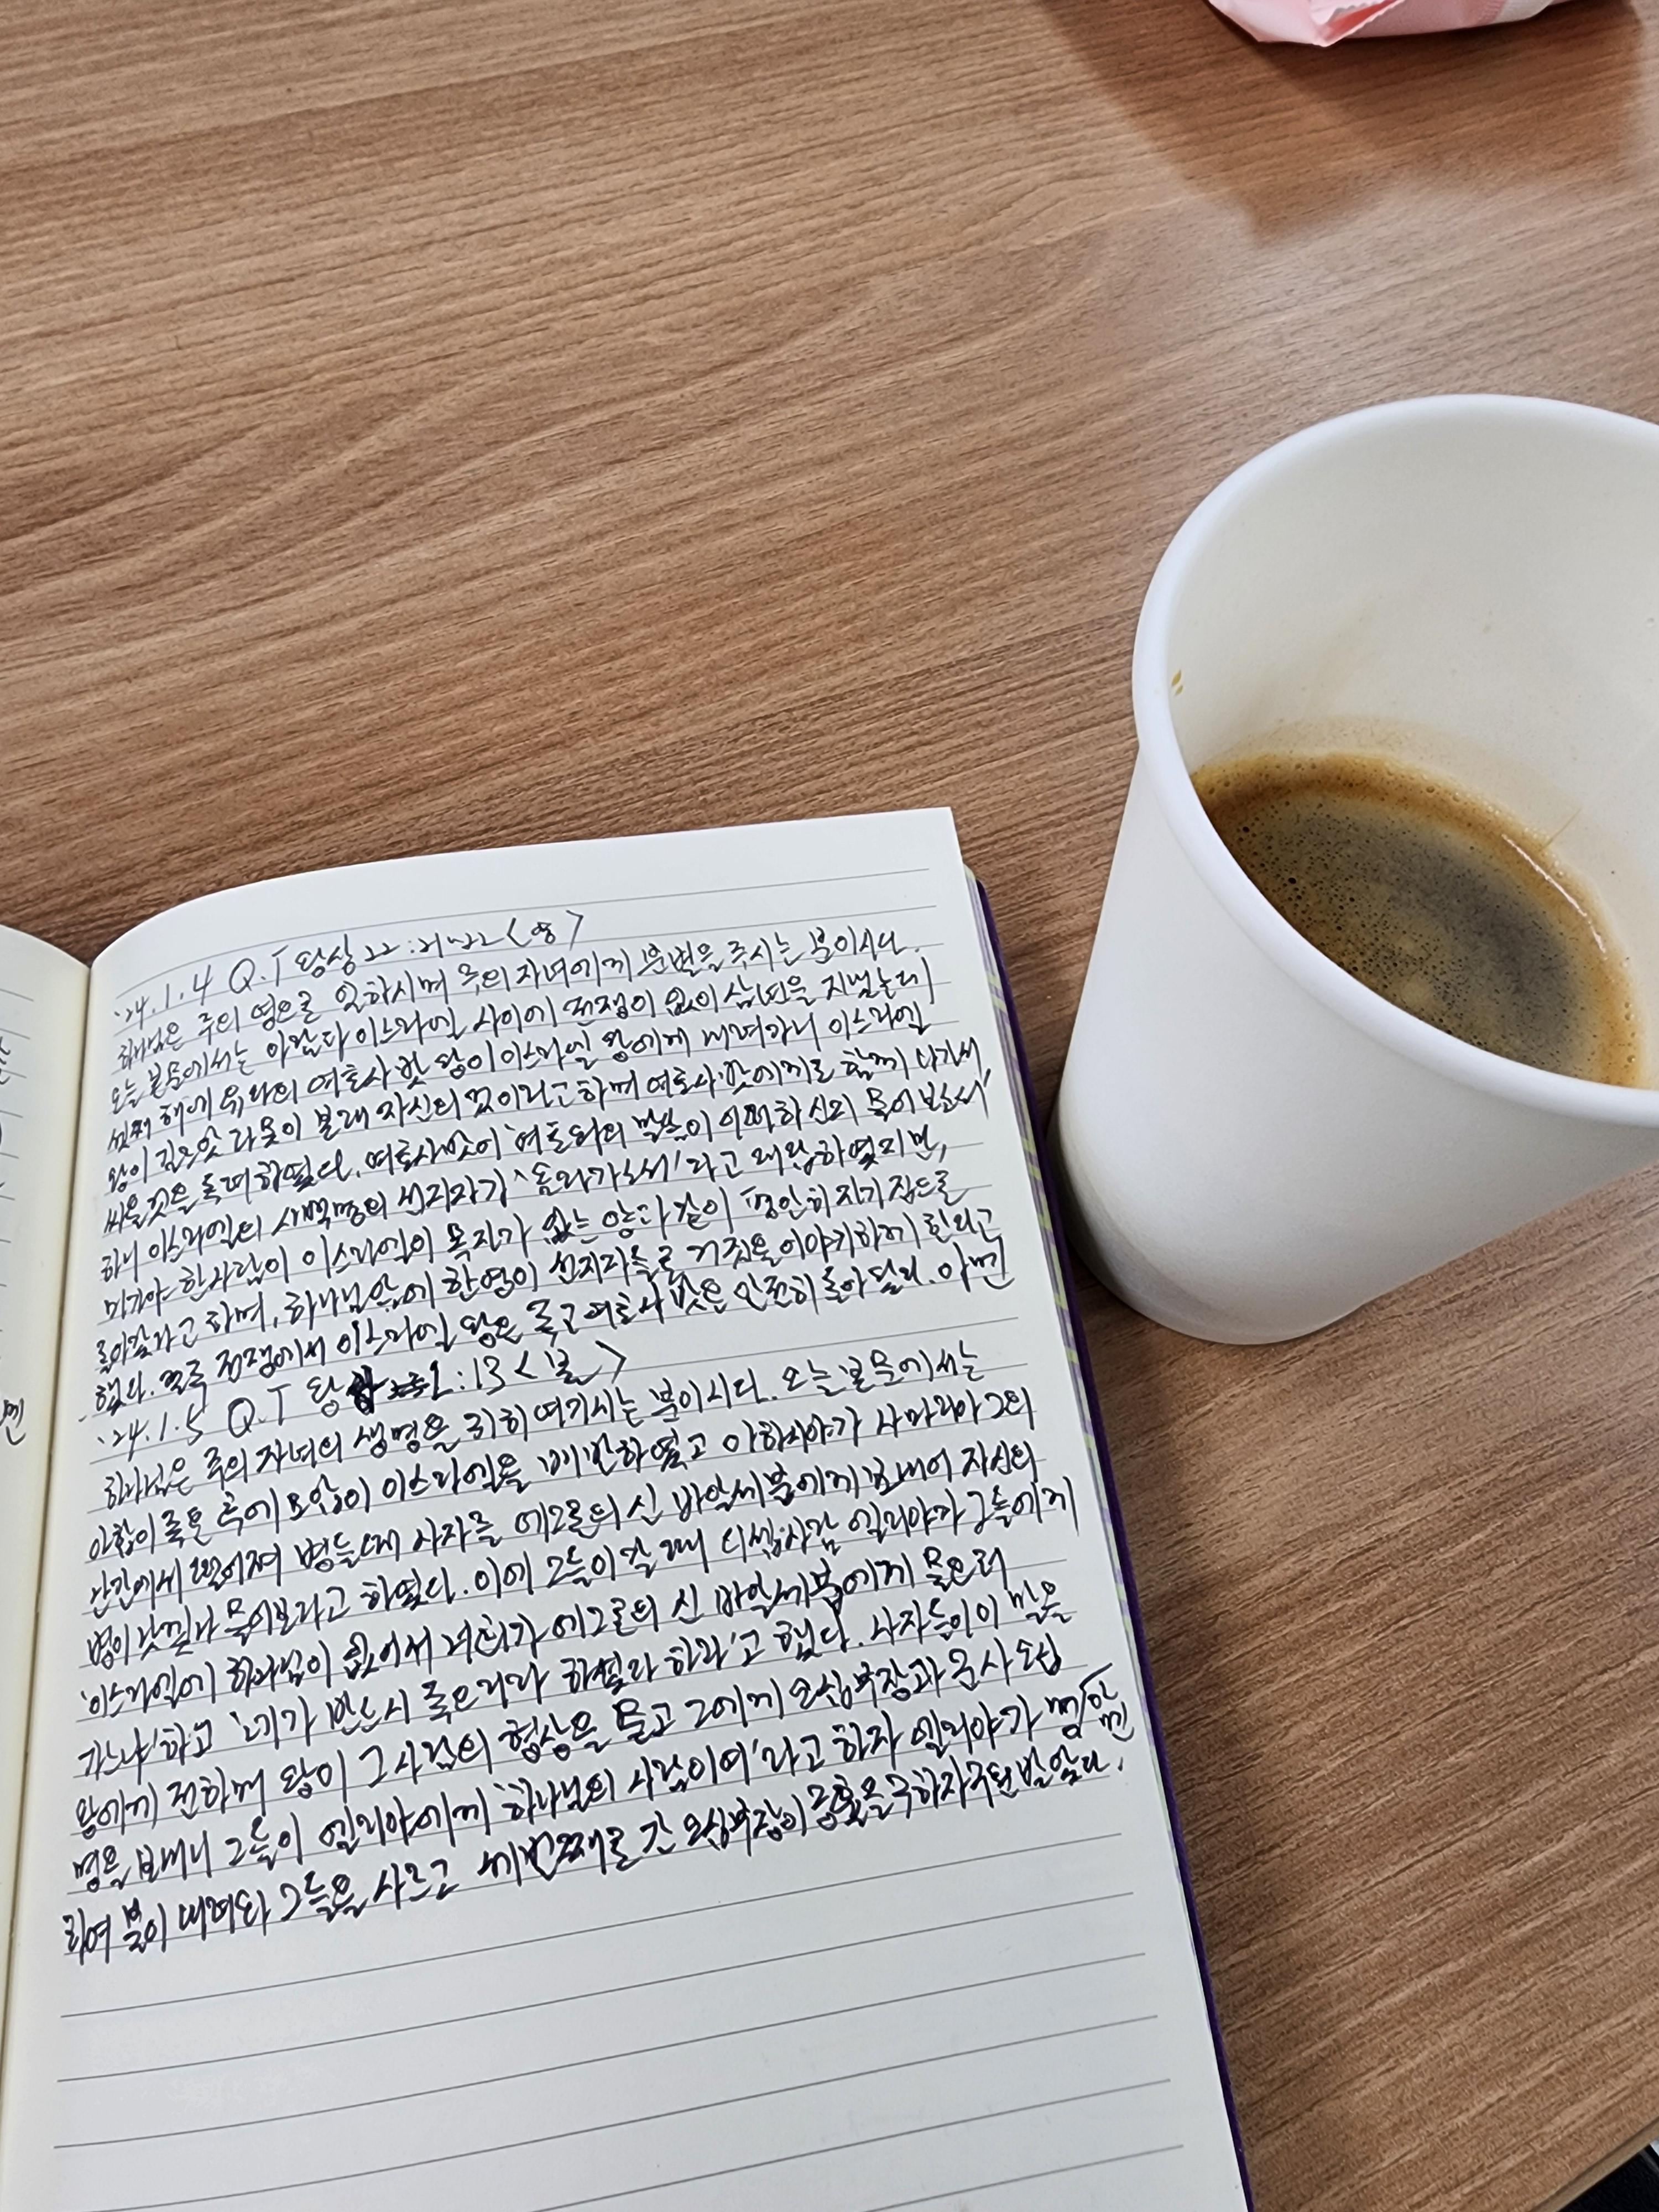 '24.1.4 Q.T 왕상 22:21~22 <영>
하나님은 주의 영으로 일하시며 주의 자녀에게 분별을 주시는 분이시다.
오늘 본문에서는 아람과 이스라엘 사이에 전쟁이 없이 삼년을 지냈는데
셋째 해에 유다의 여호사밧 왕이 이스라엘 왕에게 내려가니 이스라엘
왕이 길르앗 라못이 본래 자신의 것이라고 하며 여호사밧에게로 함께 나가서
싸울 것을 독려하였다. 여호사밧이 '여호와의 말씀이 어떠하신지 물어 보소서'
하니 이스라엘의 사백명의 선지자가 '올라가소서'라고 대답하였지만,
미가야 한사람이 이스라엘이 목자가 없는 양과 같이 평안히 자기 집으로
돌아갈라고 하며, 하나님 앞에 한 영이 선지자들로 거짓을 이야기하게 한다고
했다. 결국 전쟁에서 이스라엘 왕은 죽고 여호사밧은 안전히 돌아 왔다. 아멘
'24.1.5 Q.T 왕 1:13 <불>
하나님은 주의 자녀의 생명을 귀히 여기시는 분이시다. 오늘 본문에서는
아합이 죽은 후에 모압이 이스라엘을 배반하였고 아하시야가 사마리아 그의
난간에서 떨어져 병들매 사자를 에그론의 신 바알세붑에게 보내어 자신의
병이 낫겠나 물어보라고 하였다. 이에 그들이 갈 때 디셉사람 엘리야가 그들에게
'이스라엘에 하나님이 없어서 너희가 에그론의 신 바알세붑에게 물으러
가느냐'하고 '네가 반드시 죽으리라 하셨다 하라'고 했다. 사자들이 이 말을
왕에게 전하며 왕이 그 사람의 형상을 묻고 그에게 오십부장과 군사 오십
명을 보내니 그들이 엘리야에게 '하나님의 사람이여'라고 하자 엘리야가 명 아멘
하여 불이 내려와 그들을 사르고 세번째로 간 오십부장이 긍휼을 구하자